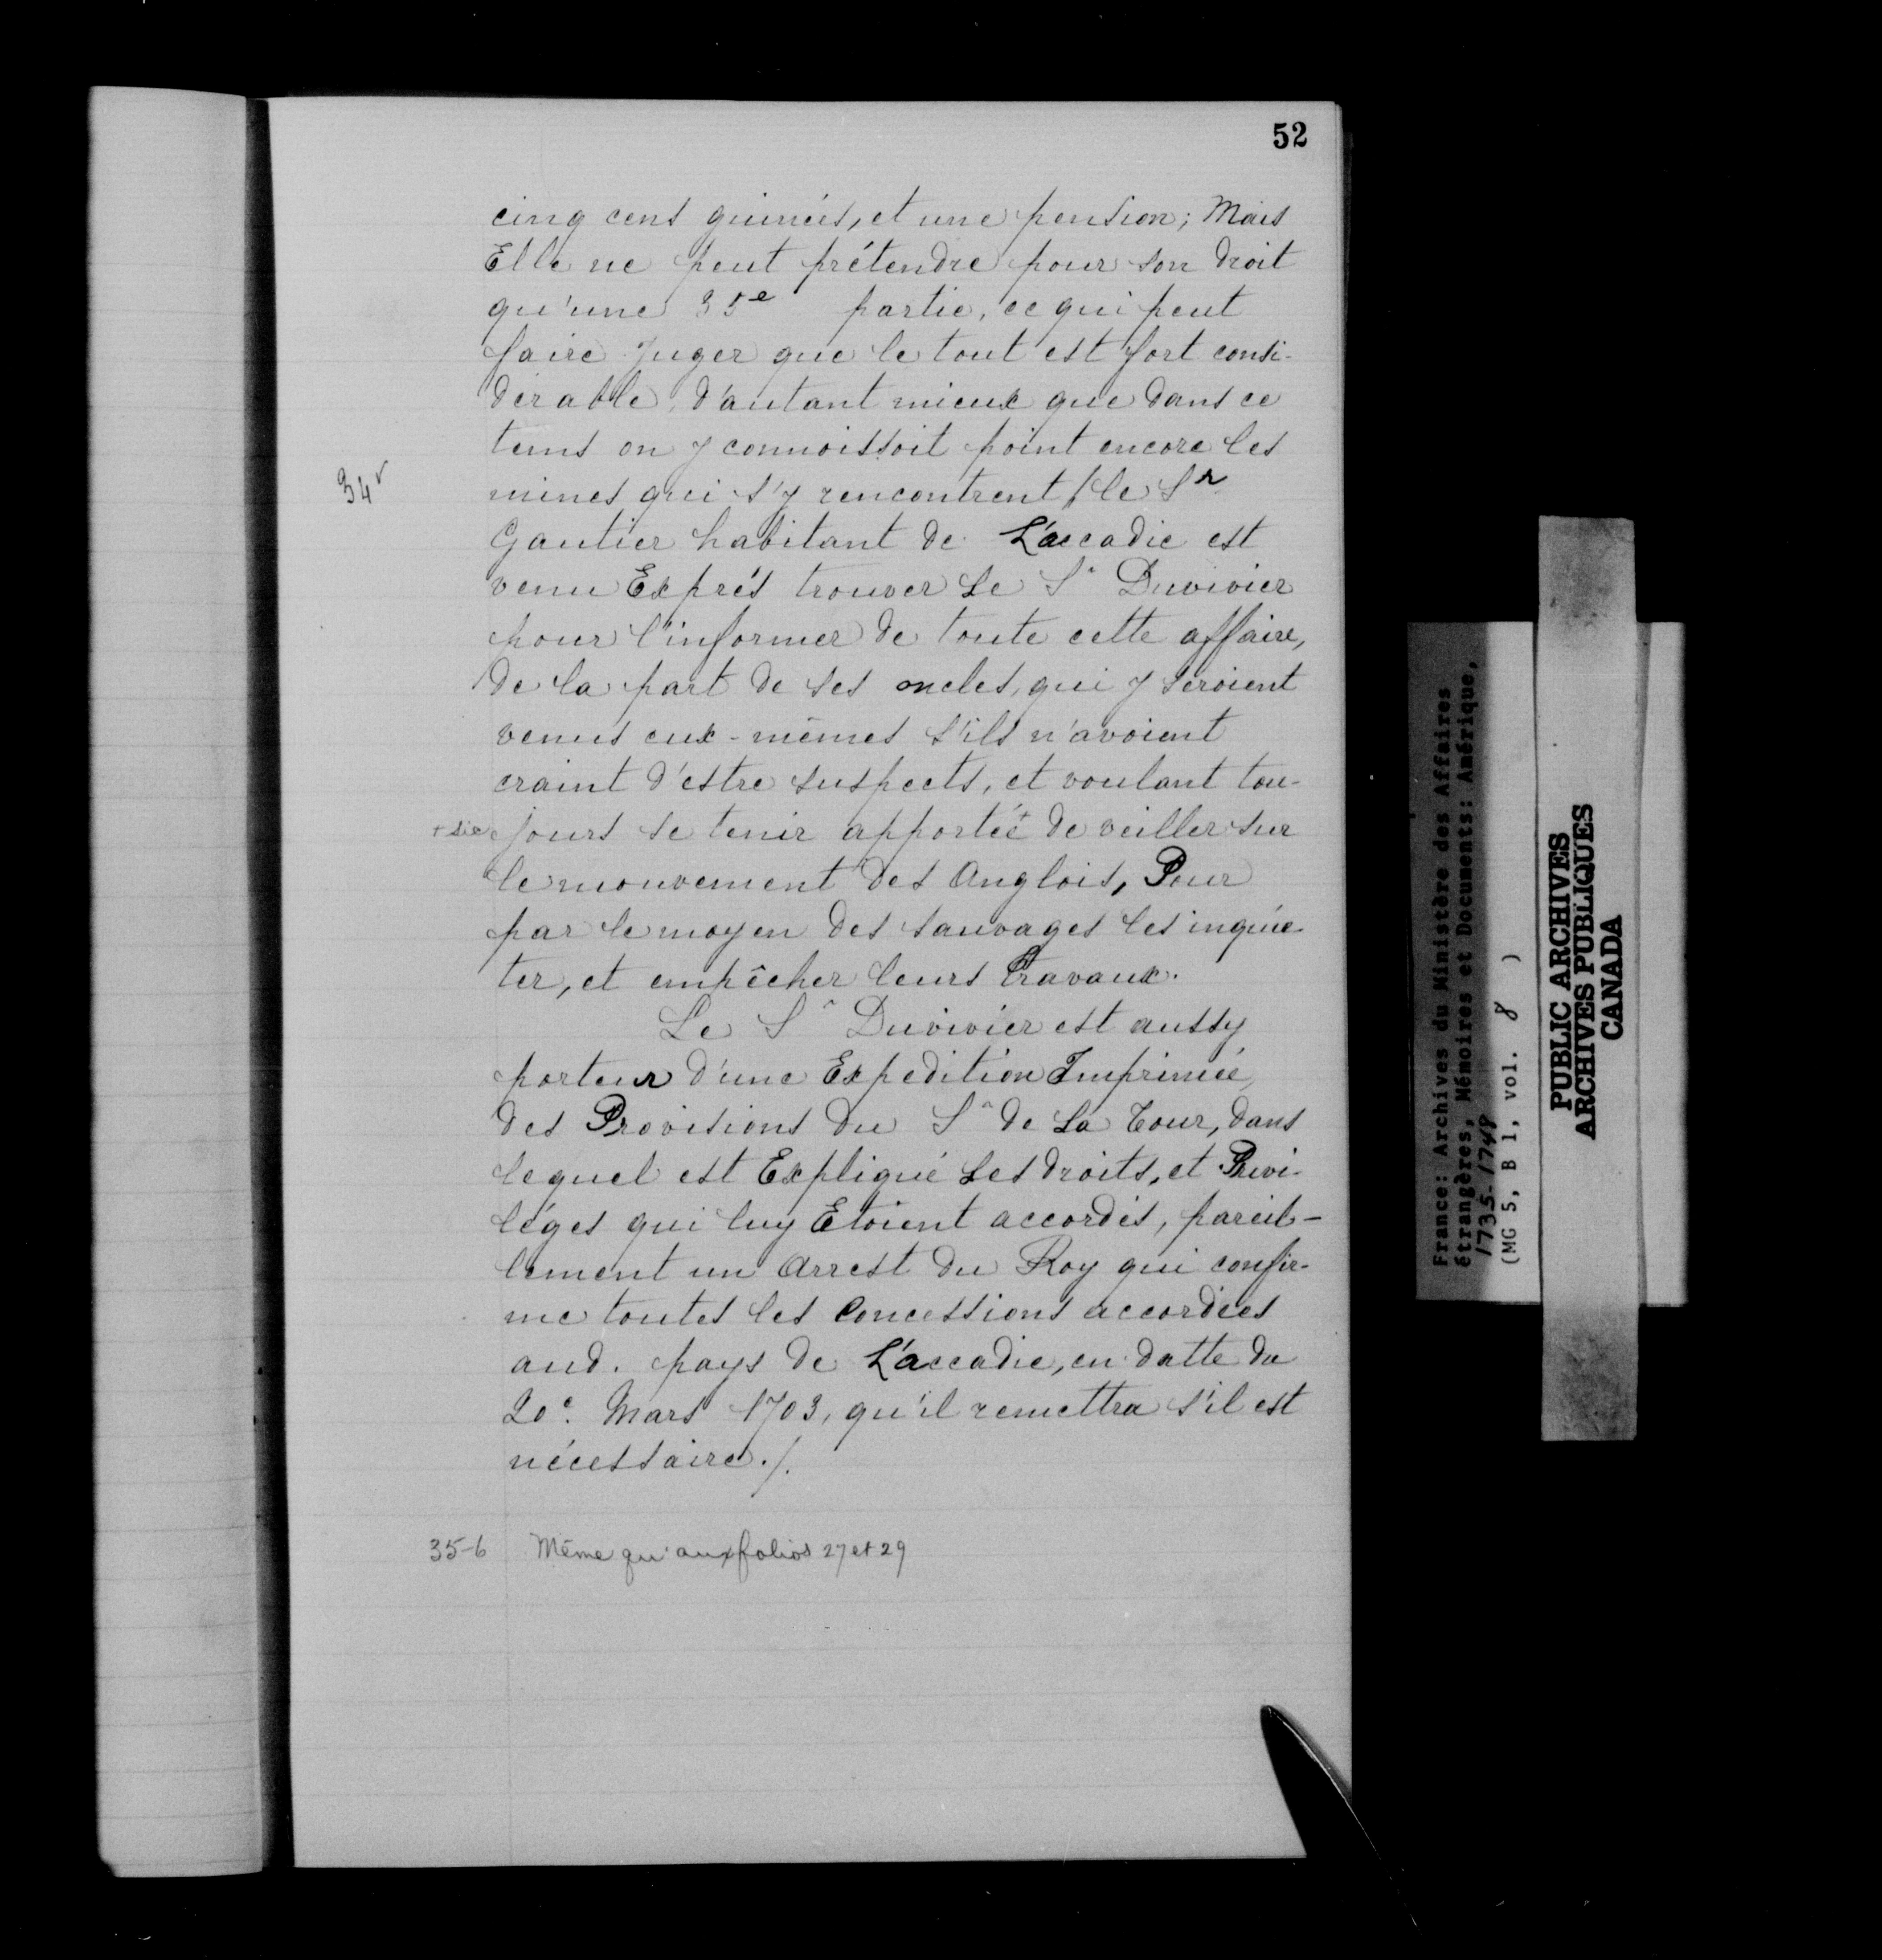 52
cinq cens guinées, et une pension; Mais
Elle ne peut prétendre pour son droit
qu'une 35e partie, ce qui peut
faire Juger que le tout est fort consi-
derable, d'autant mieux que dans ce
tems on y connoissoit point encore les
34v
mines qui s'y rencontrent / le Sr
Gautier habitant de L'accadie est
venu Exprés trouver Le Sr Duvivier
pour l'informer de toute cette affaire,
de la part de ses oncles, qui y seroient
venus eux-mêmes s'ils n'avoient
craint d'estre suspects, et voulant tou-
+ sic
jours se tenir apportée+ de veiller sur
le mouvement des Anglois, Pour
par le moyen des sauvages les inquié-
ter, et empêcher leurs travaux.
Le Sr Duvivier est aussy
porteur d'une Expedition Imprimée
des Provisions du Sr de La Tour, dans
lequel est Expliqué Les droits, et Privi-
léges qui luy Etoient accordés, pareil-
lement un Arrest du Roy qui confir-
me toutes les Concessions accordées
aud. pays de L'accadie, en datte du
20e. Mars 1703, qu'il remettra s'il est
nécessaire./.
35-6 Même qu'aux folios 27 et 29
France: Archives du Ministère des Affaires
étrangères, Mémoires et Documents: Amérique,
1735-1748
(MG 5, B 1, vol. 8 )
PUBLIC ARCHIVES
ARCHIVES PUBLIQUES
CANADA